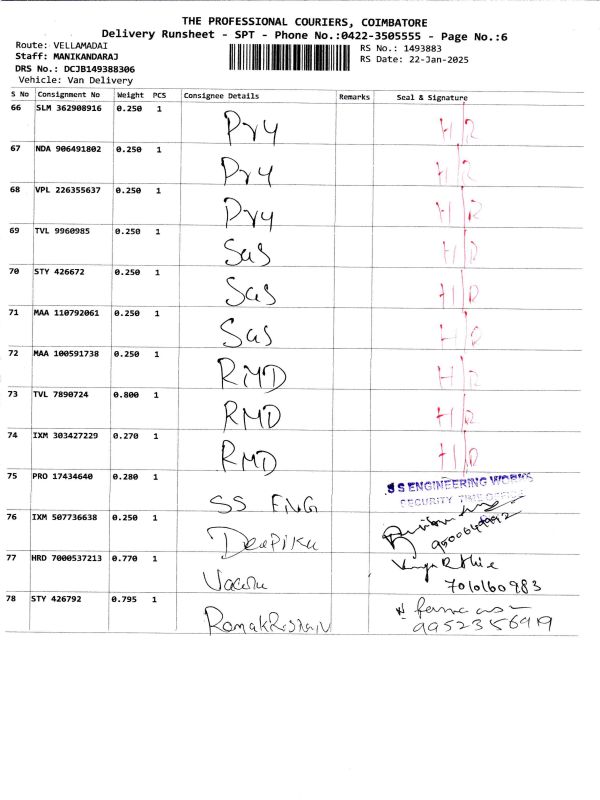 THE PROFESSIONAL COURIERS, COIMBATORE
Delivery Runsheet - SPT - Phone No.:0422-3505555 - Page No.:6
Route: VELLAMADAI
RS No.: 1493883
Staff: MANIKANDARAJ
RS Date: 22-Jan-2025
DRS No.: DCJB149388306
Vehicle: Van Delivery
S No Consignment No Weight PCS Consignee Details Remarks Seal & Signature
66 SLM 362908916 0.250 1 Pry H/D
67 NDA 906491802 0.250 1 Pry H/D
68 VPL 226355637 0.250 1 Pry H/D
69 TVL 9960985 0.250 1 Sas H/D
70 STY 426672 0.250 1 Sas H/D
71 MAA 110792061 0.250 1 Sas H/D
72 MAA 100591738 0.250 1 RMD H/D
73 TVL 7890724 0.800 1 RMD H/D
74 IXM 303427229 0.270 1 RMD H/D
75 PRO 17434640 0.280 1 SS ENG S S ENGINEERING WORKS
SECURITY TIME OFFICE
76 IXM 507736638 0.250 1 Deepika
77 HRD 7000537213 0.770 1
7010160983
78 STY 426792 0.795 1
9952356919